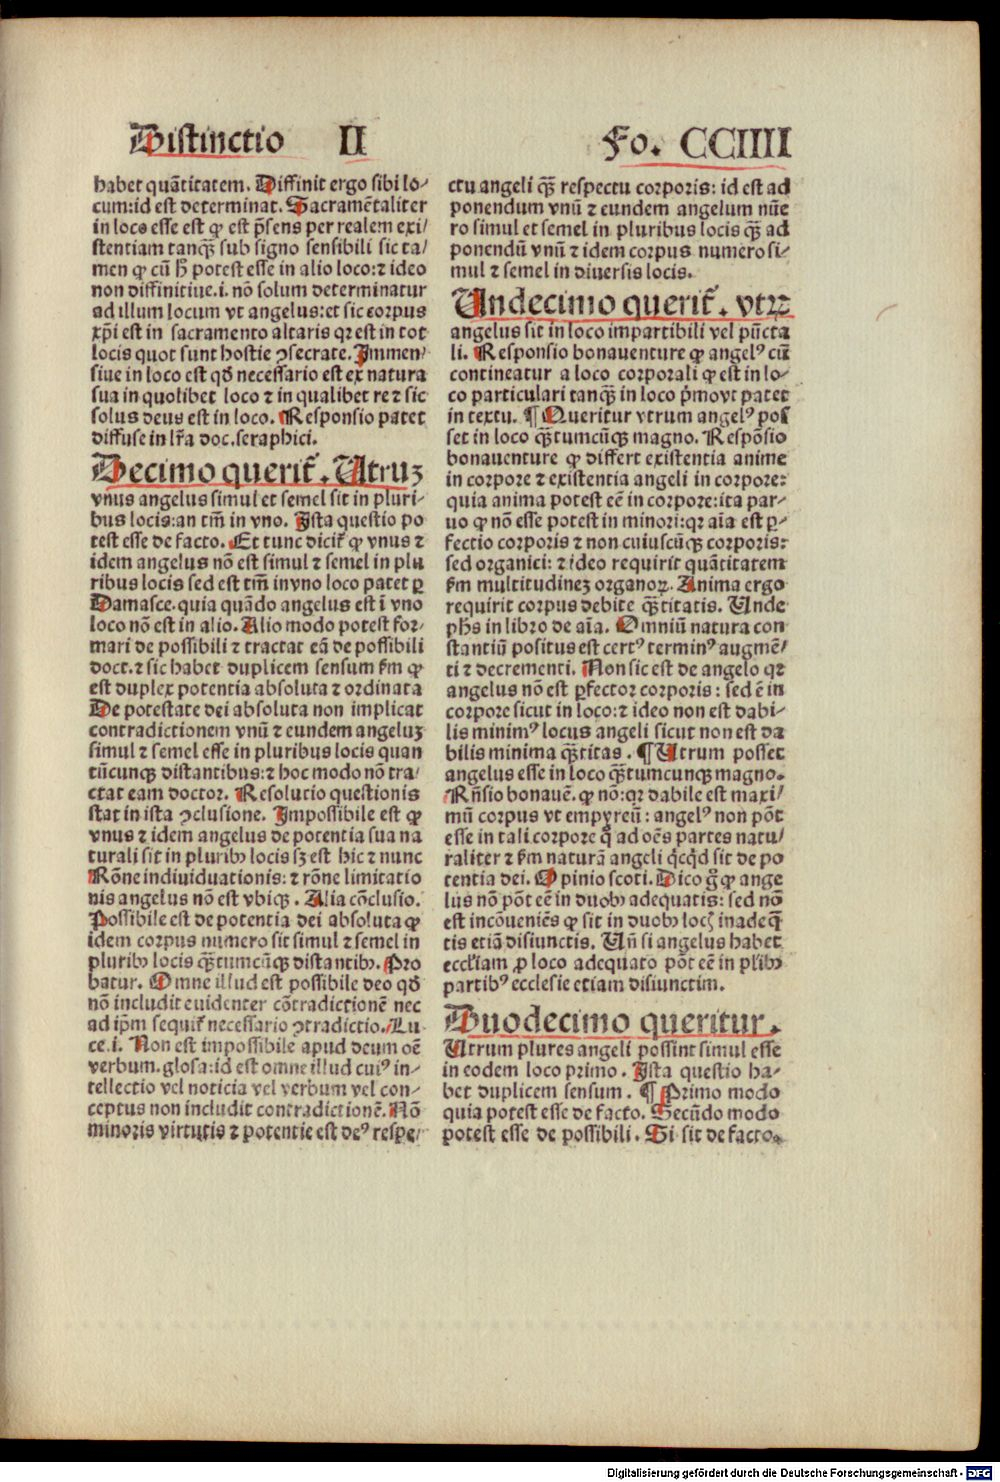 Distinctio II Fo. CCIIII
habet quãtitatem. Diffinit ergo sibi lo-
cum:id est determinat. Sacramẽtaliter
in loco esse est ꝙ est p̃sens per realem exi/
stentiam tanqȝ̃ sub signo sensibili sic ta/
men ꝙ cũ h̃ potest esse in alio loco:⁊ ideo
non diffinitiue.i. nõ solum determinatur
ad illum locum vt angelus:et sic corpus
xp̃i est in sacramento altaris qꝛ est in tot
locis quot sunt hostie ꝯsecrate. Immen/
siue in loco est qđ necessario est ex natura
sua in quolibet loco ⁊ in qualibet re ⁊ sic
solus deus est in loco. Responsio patet
diffuse in lr̃a doc.seraphici.
Decimo querit᷑. Utruꝫ
vnus angelus simul et semel sit in pluri-
bus locis:an tm̃ in vno. Ista questio po
test esse de facto. Et tunc dicit᷑ ꝙ vnus ⁊
idem angelus nõ est simul ⁊ semel in plu
ribus locis sed est tm̃ in vno loco patet ꝑ
Damasce. quia quãdo angelus est ĩ vno
loco nõ est in alio. Alio modo potest for-
mari de possibili ⁊ tractat eã de possibili
doct. ⁊ sic habet duplicem sensum fm̃ ꝙ
est duplex potentia absoluta ⁊ ordinata
De potestate dei absoluta non implicat
contradictionem vnũ ⁊ eundem angeluꝫ
simul ⁊ semel esse in pluribus locis quan
tũcunqȝ distantibus:⁊ hoc modo nõ tra/
ctat eam doctor. Resolutio questionis
stat in ista ꝯclusione. Impossibile est ꝙ
vnus ⁊ idem angelus de potentia sua na
turali sit in pluribꝫ locis sꝫ est hic ⁊ nunc
Rõne indiuiduationis: ⁊ rõne limitatio
nis angelus nõ est vbiqȝ. Alia cõclusio.
Possibile est de potentia dei absoluta ꝙ
idem corpus numero sit simul ⁊ semel in
pluribꝫ locis qȝ̃tumcũqȝ distantibꝫ. Pro
batur. Omne illud est possibile deo qđ
nõ includit euidenter cõtradictionẽ nec
ad ip̃m sequit᷑ necessario ꝯtradictio. Lu-
ce.i. Non est impossibile apud deum oẽ
verbum. glosa:id est omne illud cuiꝰ in-
tellectio vel noticia vel verbum vel con-
ceptus non includit contradictionẽ. Nõ
minoris virtutis ⁊ potentie est deꝰ respe/
ctu angeli qȝ̃ respectu corporis: id est ad
ponendum vnũ ⁊ eundem angelum nũe
ro simul et semel in pluribus locis qȝ̃ ad
ponendũ vnũ ⁊ idem corpus numero si-
mul ⁊ semel in diuersis locis.
Undecimo querit᷑. vtrꝫ
angelus sit in loco impartibili vel pũcta
li. Responsio bonauenture ꝙ angelꝰ cũ
contineatur a loco corporali ꝙ est in lo-
co particulari tanqȝ̃ in loco p̃mo vt patet
in textu. ¶ Queritur vtrum angelꝰ pos
set in loco qȝ̃tumcũqȝ magno. Respõsio
bonauenture ꝙ differt existentia anime
in corpore ⁊ existentia angeli in corpore:
quia anima potest eẽ in corpore:ita par-
uo ꝙ nõ esse potest in minori:qꝛ aĩa est ꝑ-
fectio corporis ⁊ non cuiuscũqȝ corporis:
sed organici: ⁊ ideo requirit quãtitatem
fm̃ multitudineꝫ organoꝝ. Anima ergo
requirit corpus debite qȝ̃titatis. Unde
ph̃s in libro de aĩa. Omniũ natura con
stantiũ positus est certꝰ terminꝰ augmẽ/
ti ⁊ decrementi. Non sic est de angelo qꝛ
angelus nõ est ꝑfector corporis: sed ẽ in
corpore sicut in loco:⁊ ideo non est dabi-
lis minimꝰ locus angeli sicut non est da
bilis minima qȝ̃titas. ¶ Utrum posset
angelus esse in loco qȝ̃tumcunqȝ magno.
Rñsio bonauẽ. ꝙ nõ:qꝛ dabile est maxi/
mũ corpus vt empyreũ: angelꝰ non põt
esse in tali corpore q̃ ad oẽs partes natu/
raliter ⁊ fm̃ naturã angeli q̃cq̃d sit de po
tentia dei. Opinio scoti. Dico g̃ ꝙ ange
lus nõ põt eẽ in duobꝫ adequatis: sed nõ
est incõueniẽs ꝙ sit in duobꝫ locꝭ inadeq̃
tis etiã disiunctis. Uñ si angelus habet
eccl̃iam ꝓ loco adequato põt eẽ in pl̃ibꝫ
partibꝰ ecclesie etiam disiunctim.
Duodecimo queritur.
Utrum plures angeli possint simul esse
in eodem loco primo. Ista questio ha-
bet duplicem sensum. ¶ Primo modo
quia potest esse de facto. Secũdo modo
potest esse de possibili. Si sit de facto.
Digitalisierung gefördert durch die Deutsche Forschungsgemeinschaft - DFG